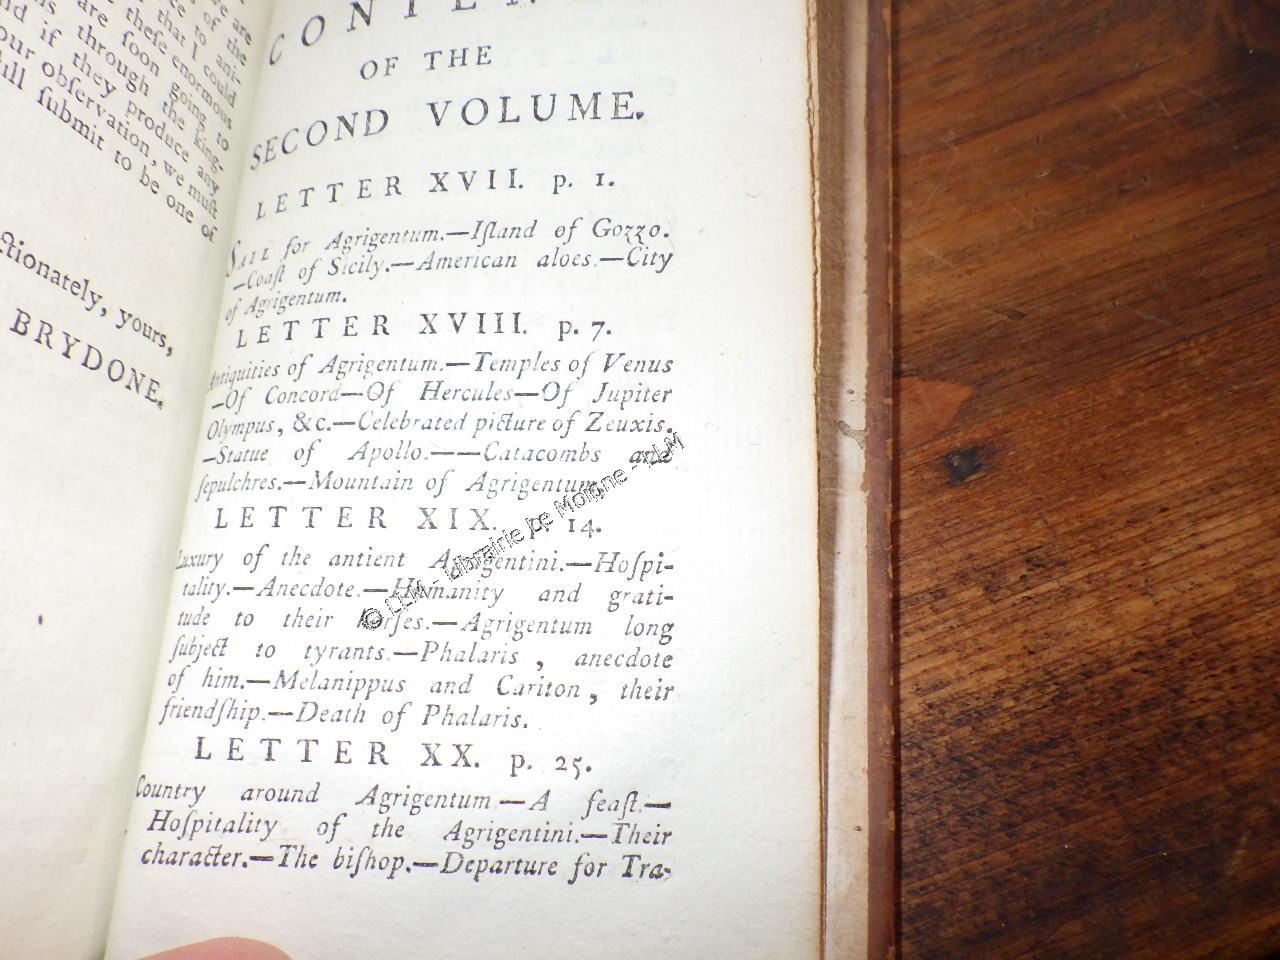 we are
of the
ce to ani-
that I could
these enormous
are ſoon going to
through the king-
nd if they produce any
our obſervation, we muſt
ſubmit to be one of
ctionately, yours,
BRYDONE.
CONTEN
OF THE
SECOND VOLUME.
LETTER XVII. p. 1.
SAIL for Agrigentum.—Iſland of Gozzo.
—Coaſt of Sicily.—American aloes.—City
of Agrigentum.
LETTER XVIII. p. 7.
Antiquities of Agrigentum.—Temples of Venus
—Of Concord—Of Hercules—Of Jupiter
Olympus, &c.—Celebrated picture of Zeuxis.
—Statue of Apollo.——Catacombs and
ſepulchres.—Mountain of Agrigentum.
LETTER XIX. p. 14.
Luxury of the antient Agrigentini.—Hoſpi-
tality.—Anecdote.—Humanity and grati-
tude to their horſes.—Agrigentum long
ſubject to tyrants.—Phalaris, anecdote
of him.—Melanippus and Cariton, their
friendſhip.—Death of Phalaris.
LETTER XX. p. 25.
Country around Agrigentum—A feaſt.—
Hoſpitality of the Agrigentini.—Their
character.—The biſhop.—Departure for Tra-
© LLM - Librairie Le Moigne - LLM